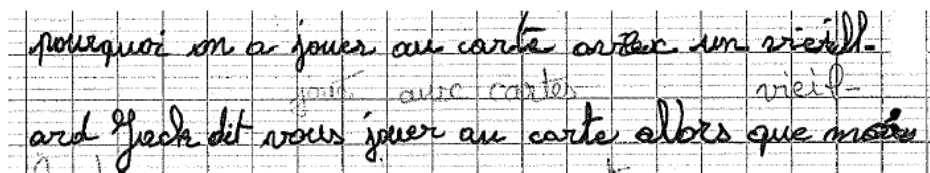 pourquoi on a jouer au carte avec un vieill-
joué aux cartes vieil-
ard Jack dit vous jouer au carte allors que moi